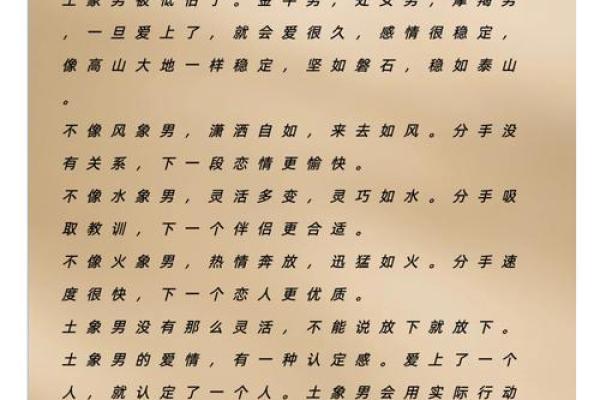 土象男被低估了。金牛男，处女男，摩羯男
，一旦爱上了，就会爱很久，感情很稳定，
像高山大地一样稳定，坚如磐石，稳如泰山
。
不像风象男，潇洒自如，来去如风。分手没
有关系，下一段恋情更愉快。
不像水象男，灵活多变，灵巧如水。分手吸
取教训，下一个伴侣更合适。
不像火象男，热情奔放，迅猛如火。分手速
度很快，下一个恋人更优质。
土象男没有那么灵活，不能说放下就放下。
土象男的爱情，有一种认定感。爱上了一个
人，就认定了一个人。土象男会用实际行动